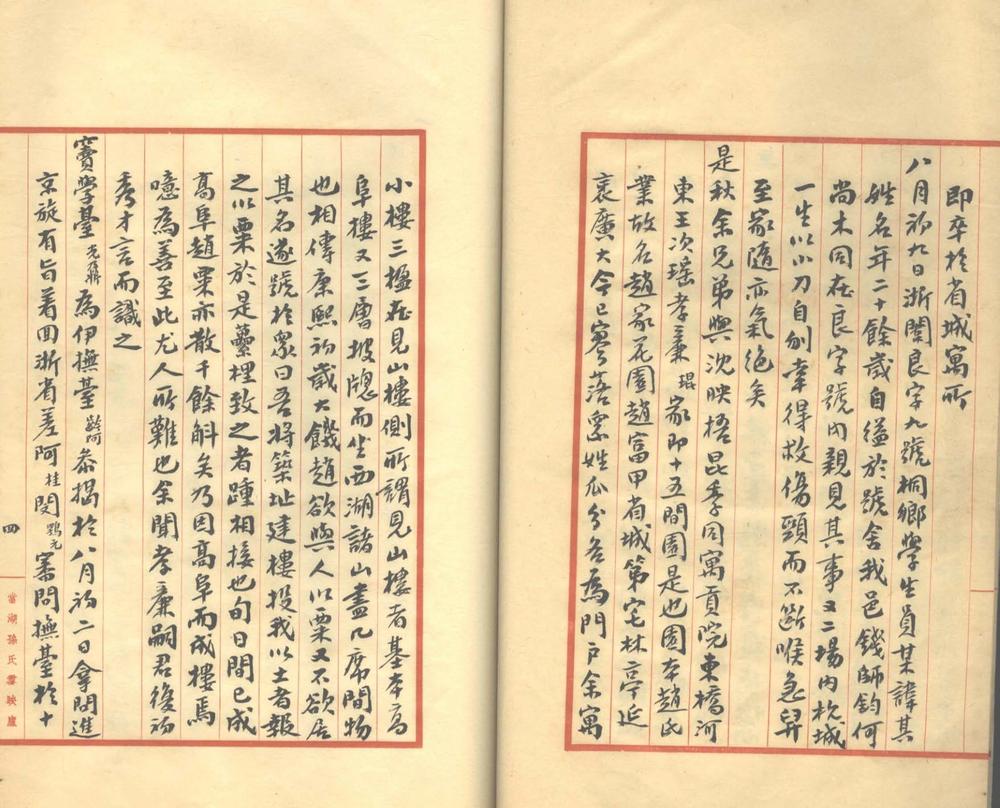 即卒於省城寓所
八月初九日浙闈良字九號桐鄉學生員某諱其
姓名年二十餘歲自縊於號舍我邑錢師鈞何
尚木同在良字號內親見其事又二場內杭城
一生以小刀自刎幸得救傷頸而不斷喉急舁
至家隨亦氣絕矣
是秋余兄弟與沈映梧昆季同寓貢院東橋河
東王次瑤孝廉琨家即十五間園是也園本趙氏
業故名趙家花園趙富甲省城第宅林亭延
袤廣大今已寥落眾姓瓜分各為門戶余寓
小樓三楹在見山樓側所謂見山樓者基本高
阜樓又三層坡牎而坐西湖諸山盡几席間物
也相傳康熙初歲大饑趙欲與人以粟又不欲居
其名遂號於眾曰吾將築址建樓投我以土者報
之以粟於是虆梩致之者踵相接也旬日間已成
高阜趙粟亦散千餘斛矣乃因高阜而成樓焉
噫為善至此尤人所難也余聞孝廉嗣君後初
秀才言而識之
竇學臺光鼐為伊撫臺齡阿叅揭於八月初二日拿問進
京旋有旨着回浙省差阿桂閔鶚元審問撫臺於十
四
當湖孫氏雪映廬